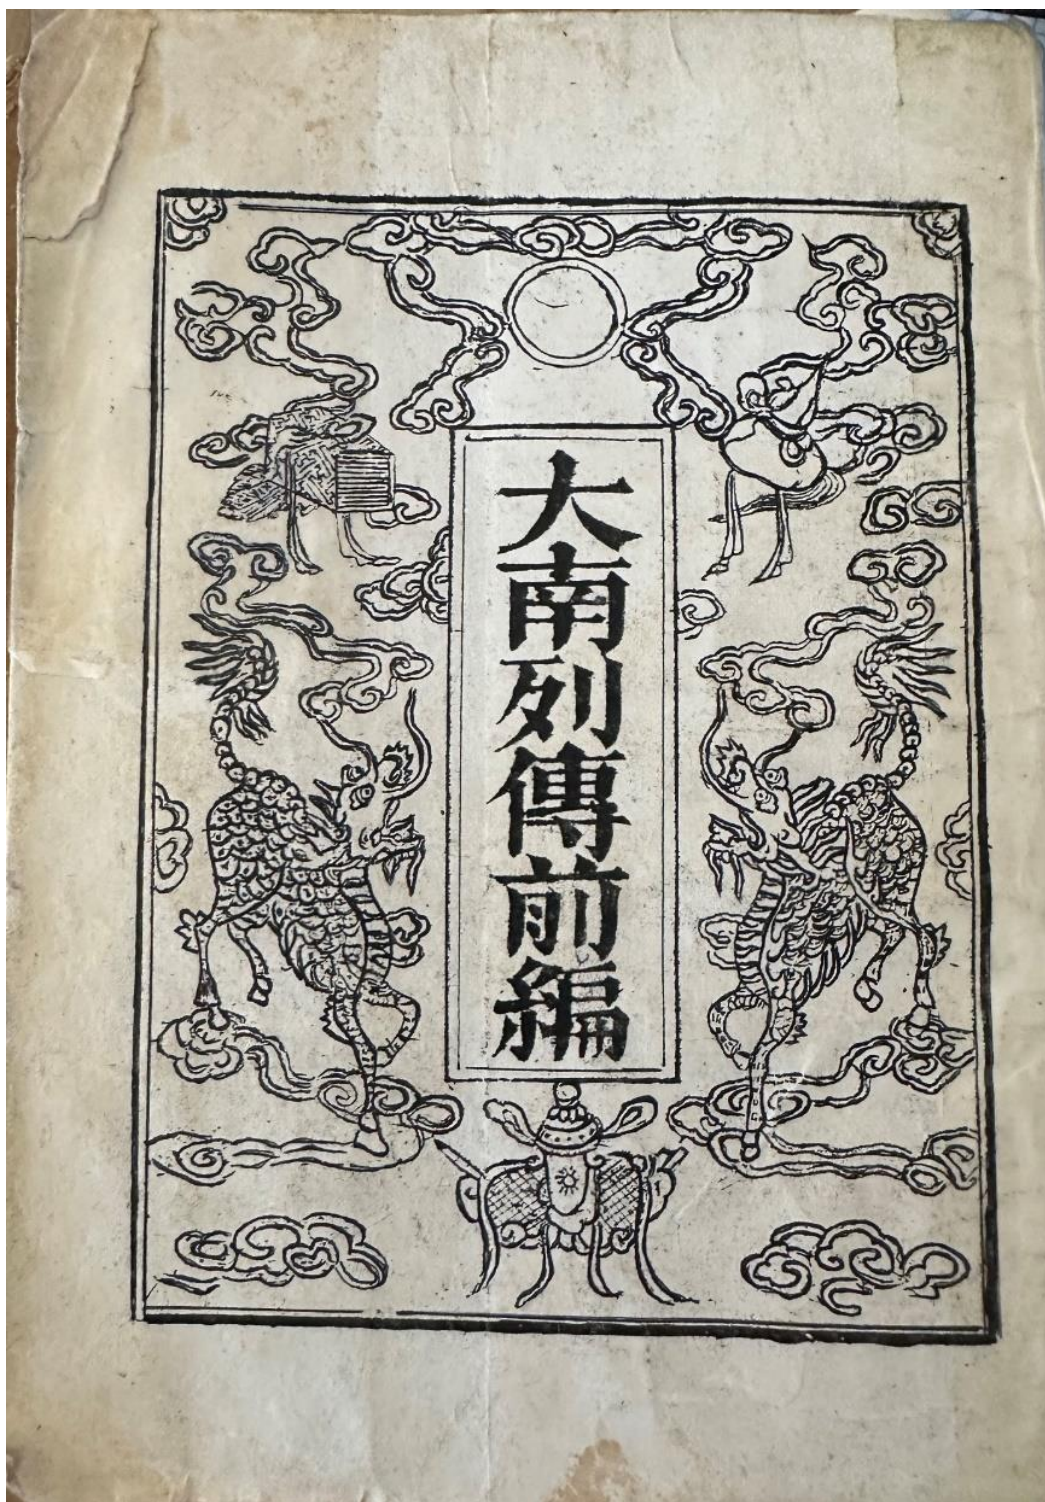 大南列傳前編